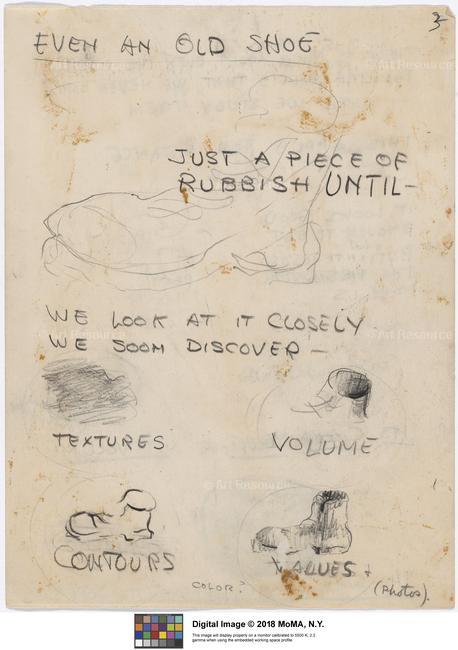 3
EVEN AN OLD SHOE
JUST A PIECE OF
RUBBISH UNTIL—
WE LOOK AT IT CLOSELY
WE SOOM DISCOVER —
TEXTURES
VOLUME
CONTOURS
VALUES +
COLOR?
(PHOTOS).
© Art Resource
Digital Image © 2018 MoMA, N.Y.
This image will display properly on a monitor calibrated to 5500 K, 2.2
gamma when using the embedded working space profile